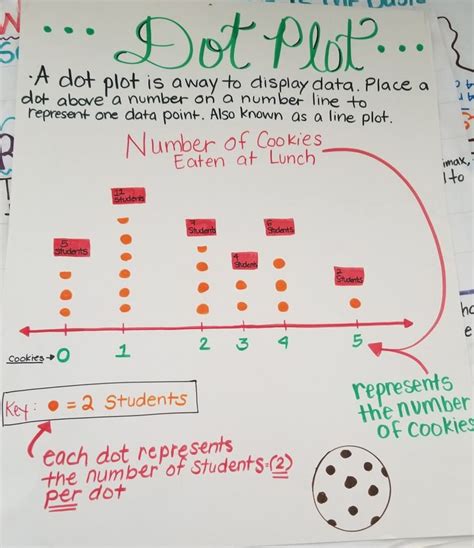 ... Dot Plot ...
· A dot plot is away to display data. Place a
dot above a number on a number line to
represent one data point. Also known as a line plot.
Number of Cookies
Eaten at Lunch
5 Students
11 Students
7 Students
4 Students
6 Students
2 Students
Cookies → 0 1 2 3 4 5
Key: = 2 Students
each dot represents
the number of students (2)
per dot
represents
the number
of cookies
imax,
1 to